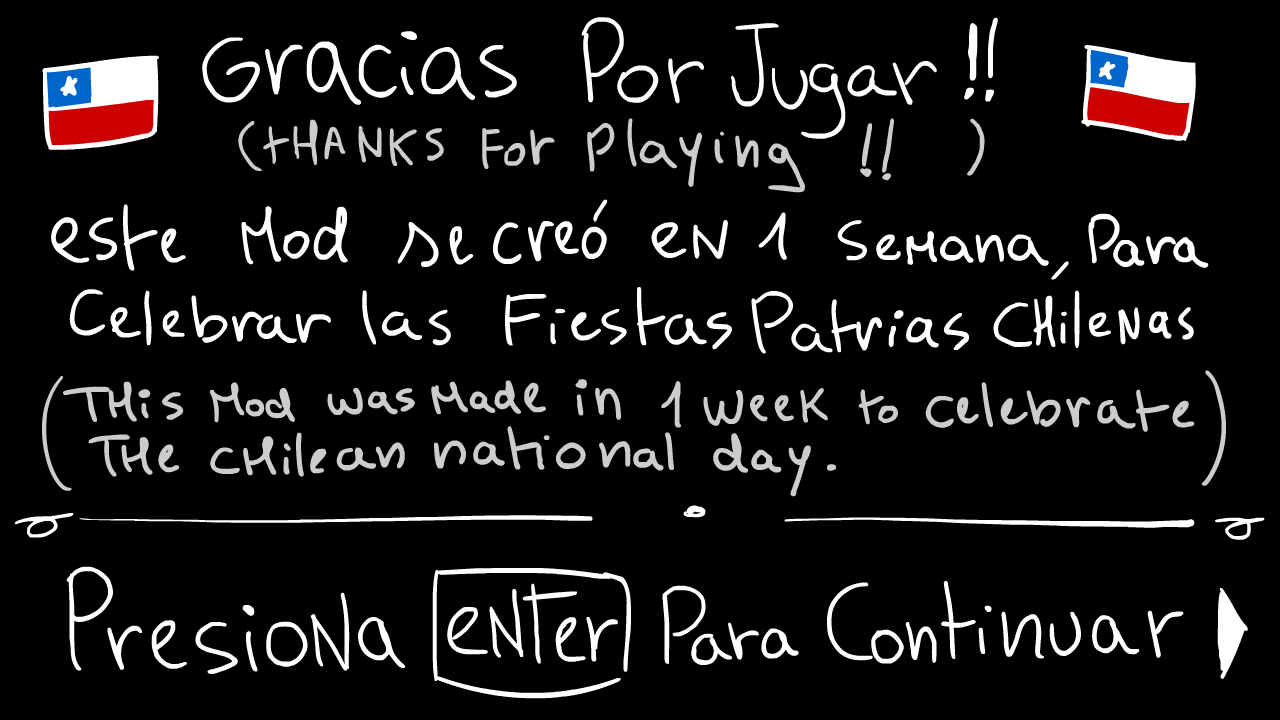 Gracias Por Jugar !!
(THANKS For Playing !! )
este Mod se creó en 1 semana, Para
Celebrar las Fiestas Patrias CHilenas
(THis Mod was Made in 1 week to celebrate
THe CHilean national day.)
Presiona enter Para Continuar